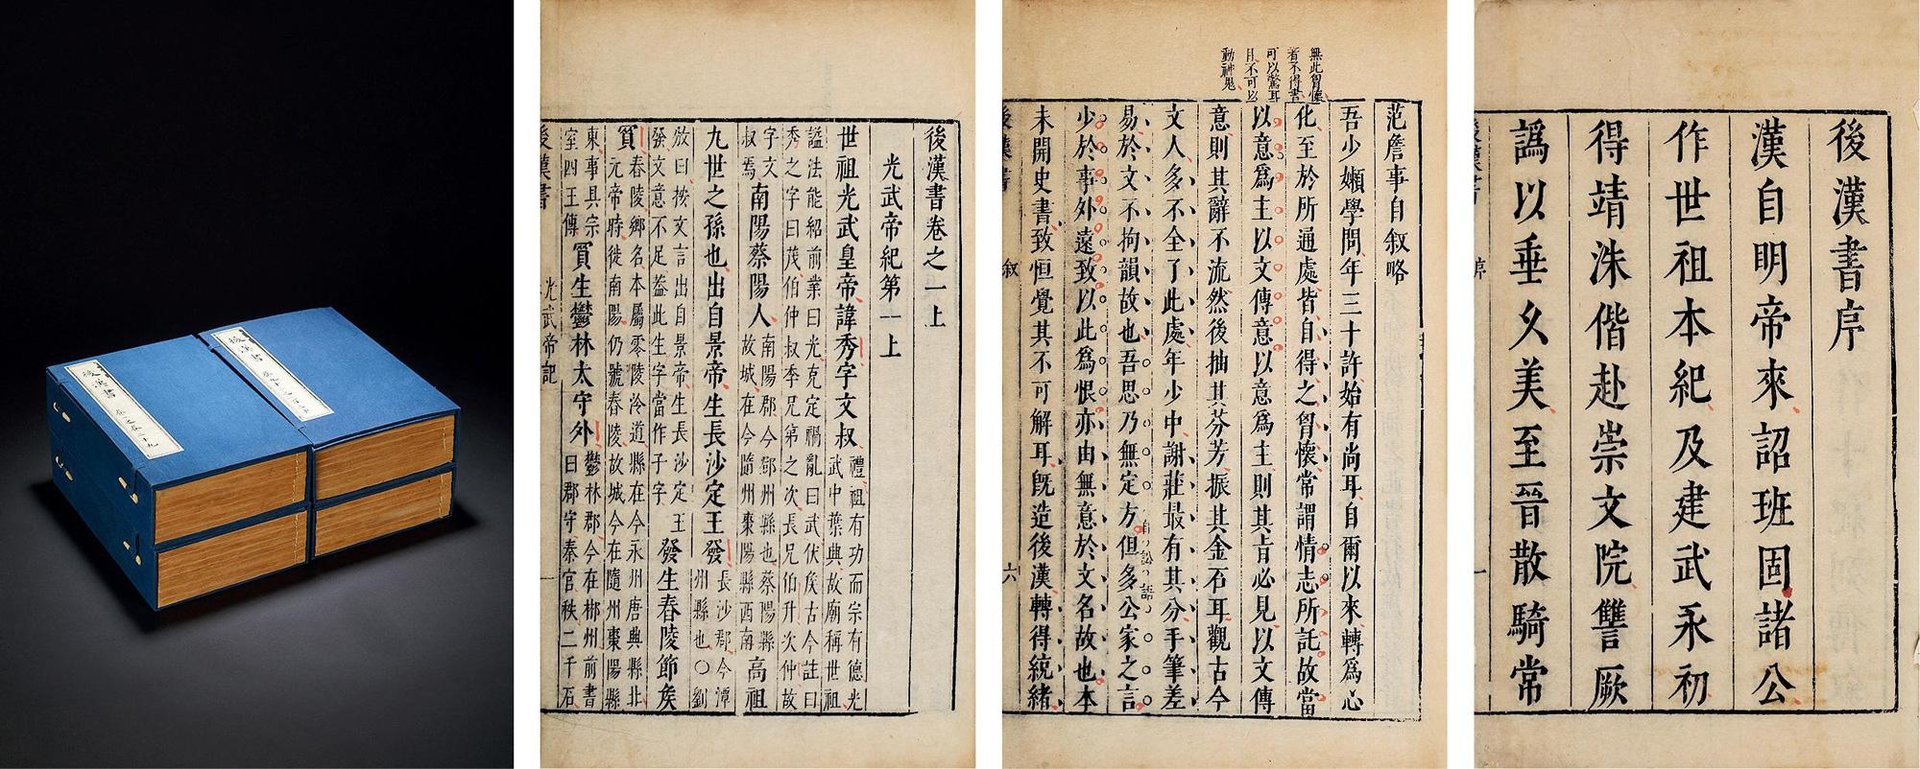 後漢書
後漢書
後漢書卷之一上
光武帝紀第一上
世祖光武皇帝諱秀字文叔禮祖有功而宗有德光武中葉興故廟稱世祖
謚法能紹前業曰光克定禍亂曰武伏侯古今註曰
秀之字曰茂伯仲叔季兄弟之次長兄伯升次仲故
字文叔焉南陽蔡陽人南陽郡今鄧州縣也蔡陽縣故城在今隨州棗陽縣西南高祖
九世之孫也出自景帝生長沙定王發長沙郡今潭州縣也○劉
攽曰按文言出自景帝生長沙定王發文意不足蓋此生字當作子字發生舂陵節侯
買舂陵鄉名本屬零陵泠道縣在今永州唐興縣北元帝時徙南陽仍號舂陵故城今在隨州棗陽縣
東事具宗室四王傳買生鬱林太守外鬱林郡今在郴州前書曰郡守秦官秩二千石
後漢書 光武帝記 一
無此胷懷
者不得書
可以驚耳
目不可以
動神鬼
范詹事自敘略
吾少嬾學問年三十許始有尚耳自爾以來轉為心
化至於所通處皆自得之胷懷常謂情志所託故當
以意為主以文傳意以意為主則其旨必見以文傳
意則其辭不流然後抽其芬芳振其金石耳觀古今
文人多不全了此處年少中謝莊最有其分手筆差
易於文不拘韻故也吾思乃無定方但多公家之言
少於事外遠致以此為恨亦由無意於文名故也本
未開史書致恒覺其不可解耳既造後漢轉得統緒
後漢書 敘 六
後漢書序
漢自明帝來詔班固諸公
作世祖本紀及建武永初
得靖洙偕赴崇文院讐厥
譌以垂久美至晉散騎常
後漢書 序 一